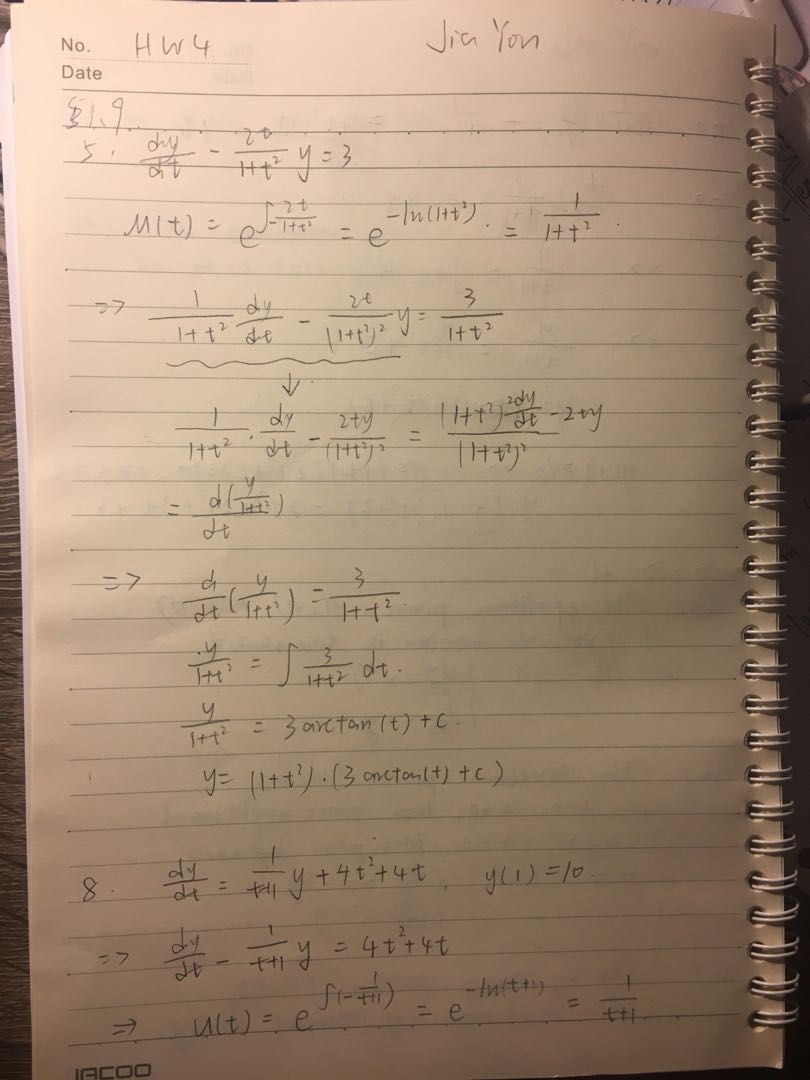 No. HW4. Jia You
Date
§1.9
5. dy/dt - 2t/(1+t²) y = 3
M(t) = e^(∫-2t/(1+t²)) = e^(-ln(1+t²)). = 1/(1+t²).
=> 1/(1+t²) dy/dt - 2t/(1+t²)² y = 3/(1+t²)
↓
1/(1+t²) · dy/dt - 2ty/(1+t²)² = ((1+t²)² dy/dt - 2ty)/(1+t²)²
= d(y/(1+t²))/dt
=> d/dt (y/(1+t²)) = 3/(1+t²)
y/(1+t²) = ∫ 3/(1+t²) dt.
y/(1+t²) = 3 arctan(t) + c.
y = (1+t²)·(3 arctan(t) + c)
8. dy/dt = 1/(t+1) y + 4t² + 4t, y(1) = 10.
=> dy/dt - 1/(t+1) y = 4t² + 4t
=> u(t) = e^(∫(-1/(t+1))) = e^(-ln(t+1)) = 1/(t+1)
JACOO